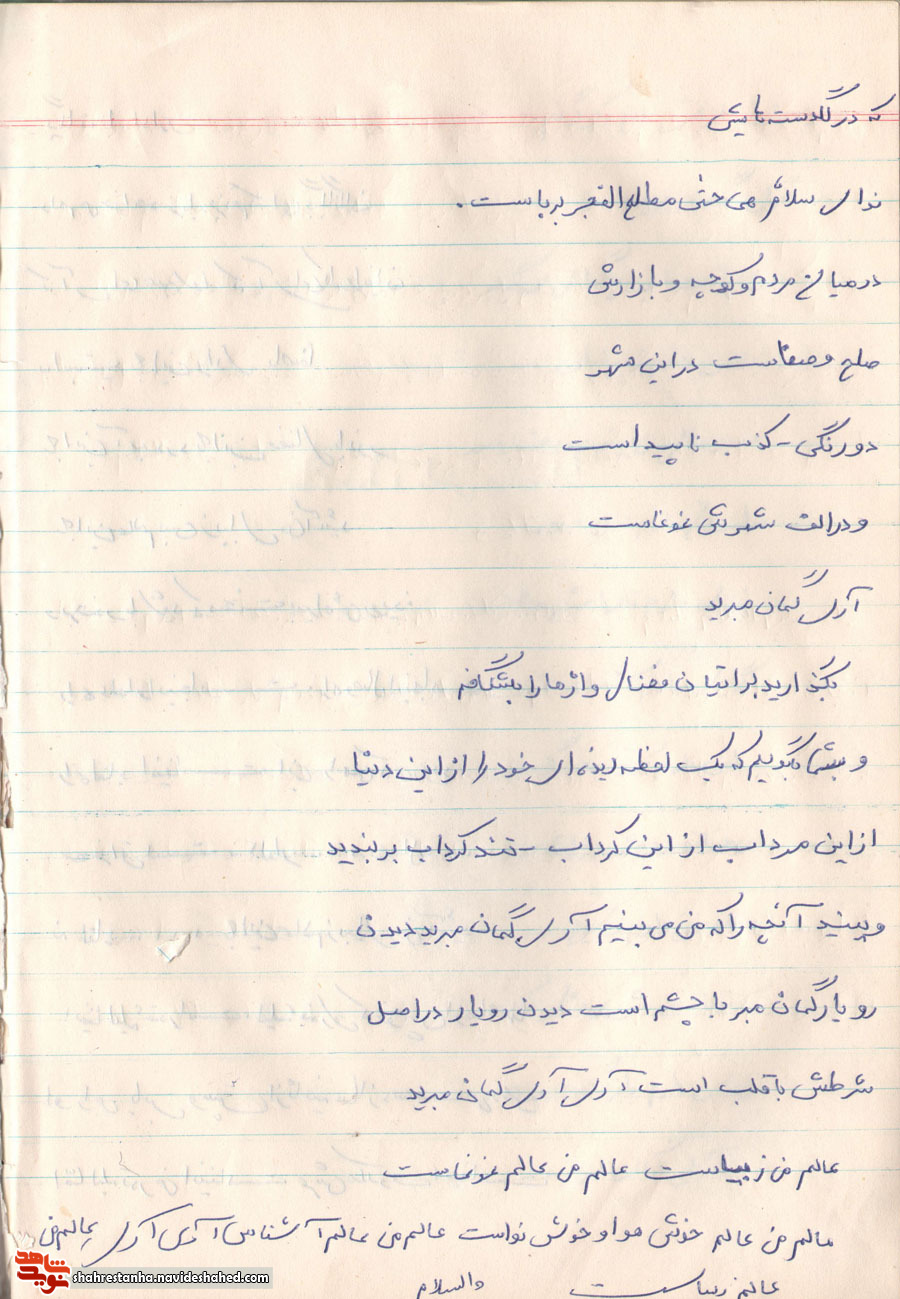 که در گلدسته هایش
ندای سلامٌ هی حتی مطلع الفجر برپاست.
در میان مردم و کوچه و بازارش
صلح و صفاست در این شهر
دورنگی - کذب ناپیداست
و در الف شهرش غوغاست
آری گمان مبرید
بگذارید برایتان فضای واژه را بشکافم
و بشما بگویم که یک لحظه دیده ای خود را از این دنیا
از این مرداب از این گرداب - تند گرداب بر بندید
و ببینید آنچه را که من می بینم آری گمان مبرید دیدن
رویار گمان مبر با چشم است دیدن رویار در اصل
شرطش با قلب است آری آری گمان مبرید
عالم من زیباست عالم من عالم غوغاست
عالم من عالم خوش هوا و خوش نواست عالم من عالم آشناس آری آری عالم من
عالم زیباست والسلام
نوید شاهد
shahrestanha.navideshahed.com